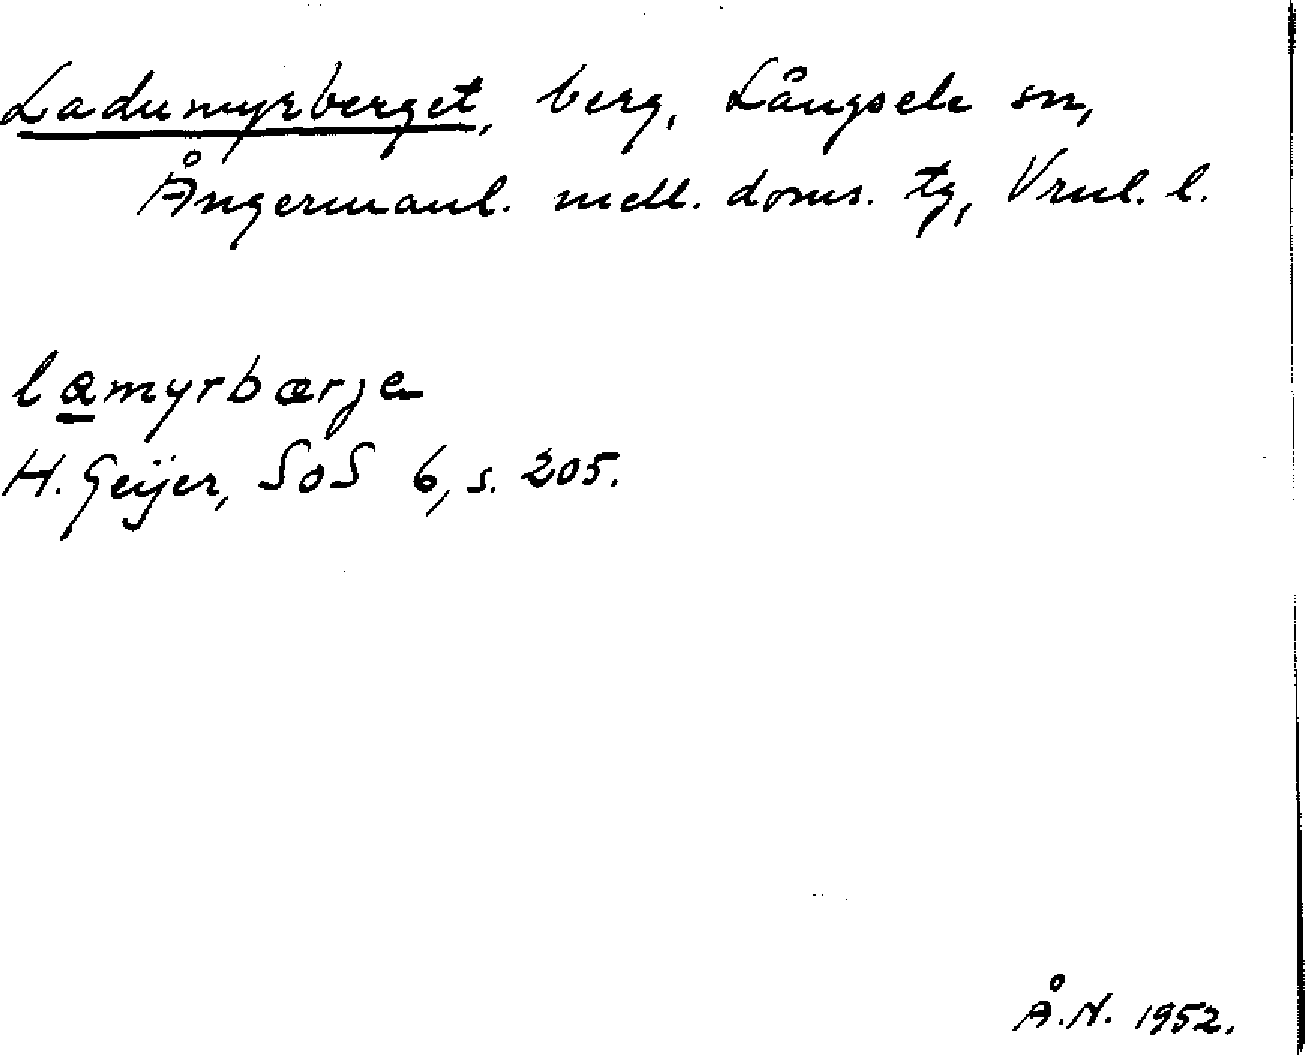 Ladumyrberget, berg, Långsele sn,
Ångermanl. mell. doms. tg, Vrnl. l.
lamyrbærje
H. Geijer, SoS 6, s. 205.
Å.N. 1952.